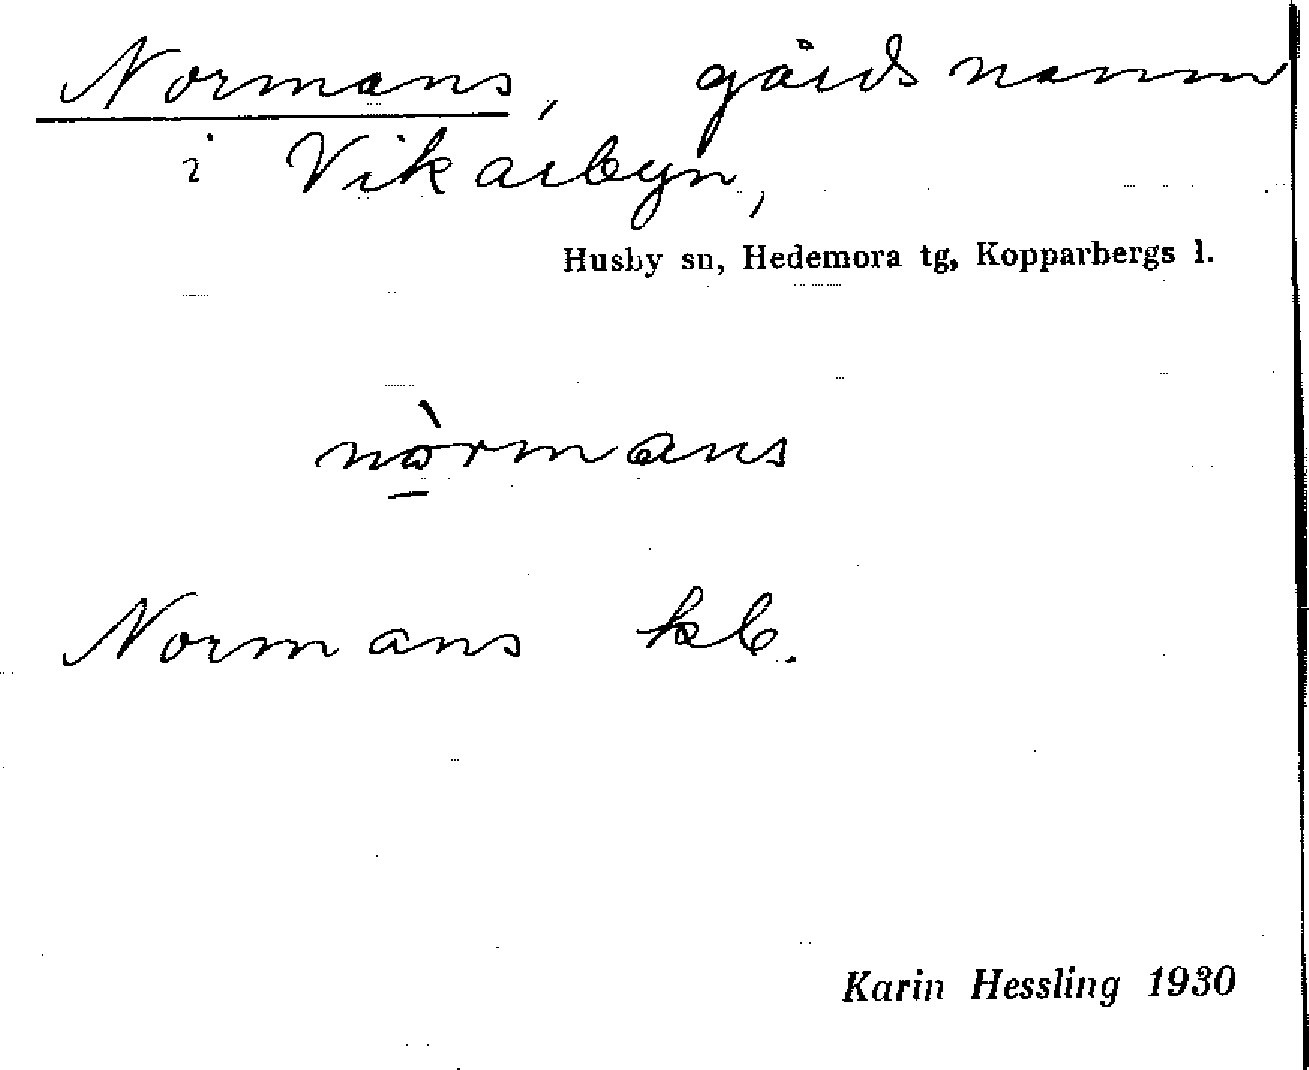 Normans, gårdsnamn
i Vikarbyn,
Husby sn, Hedemora tg, Kopparbergs l.
nò̱rmans
Normans kb.
Karin Hessling 1930